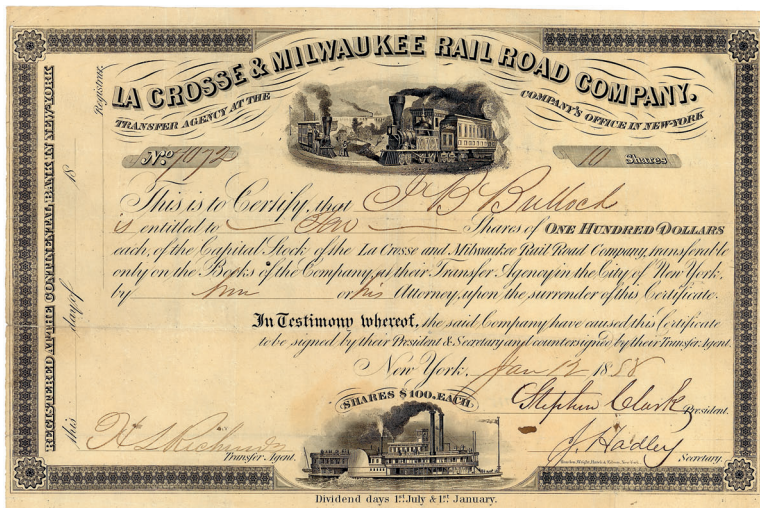 LA CROSSE & MILWAUKEE RAIL ROAD COMPANY.
TRANSFER AGENCY AT THE COMPANY'S OFFICE IN NEW-YORK
No. 7072 10 Shares
This is to Certify, that J B Bulloch
is entitled to Ten Shares of ONE HUNDRED DOLLARS
each, of the Capital Stock of the La Crosse and Milwaukee Rail Road Company, transferable
only on the Books of the Company, at their Transfer Agency in the City of New York,
by him or his Attorney, upon the surrender of this Certificate.
In Testimony whereof, the said Company have caused this Certificate
to be signed by their President & Secretary and countersigned by their Transfer Agent.
New York, Jan 12 1858
SHARES $100. EACH
Stephen Clark President.
J. Hadley Secretary.
Transfer Agent.
Dividend days 1st July & 1st January.
REGISTERED AT THE CONTINENTAL BANK IN NEW-YORK
this day of 18 Registrar.